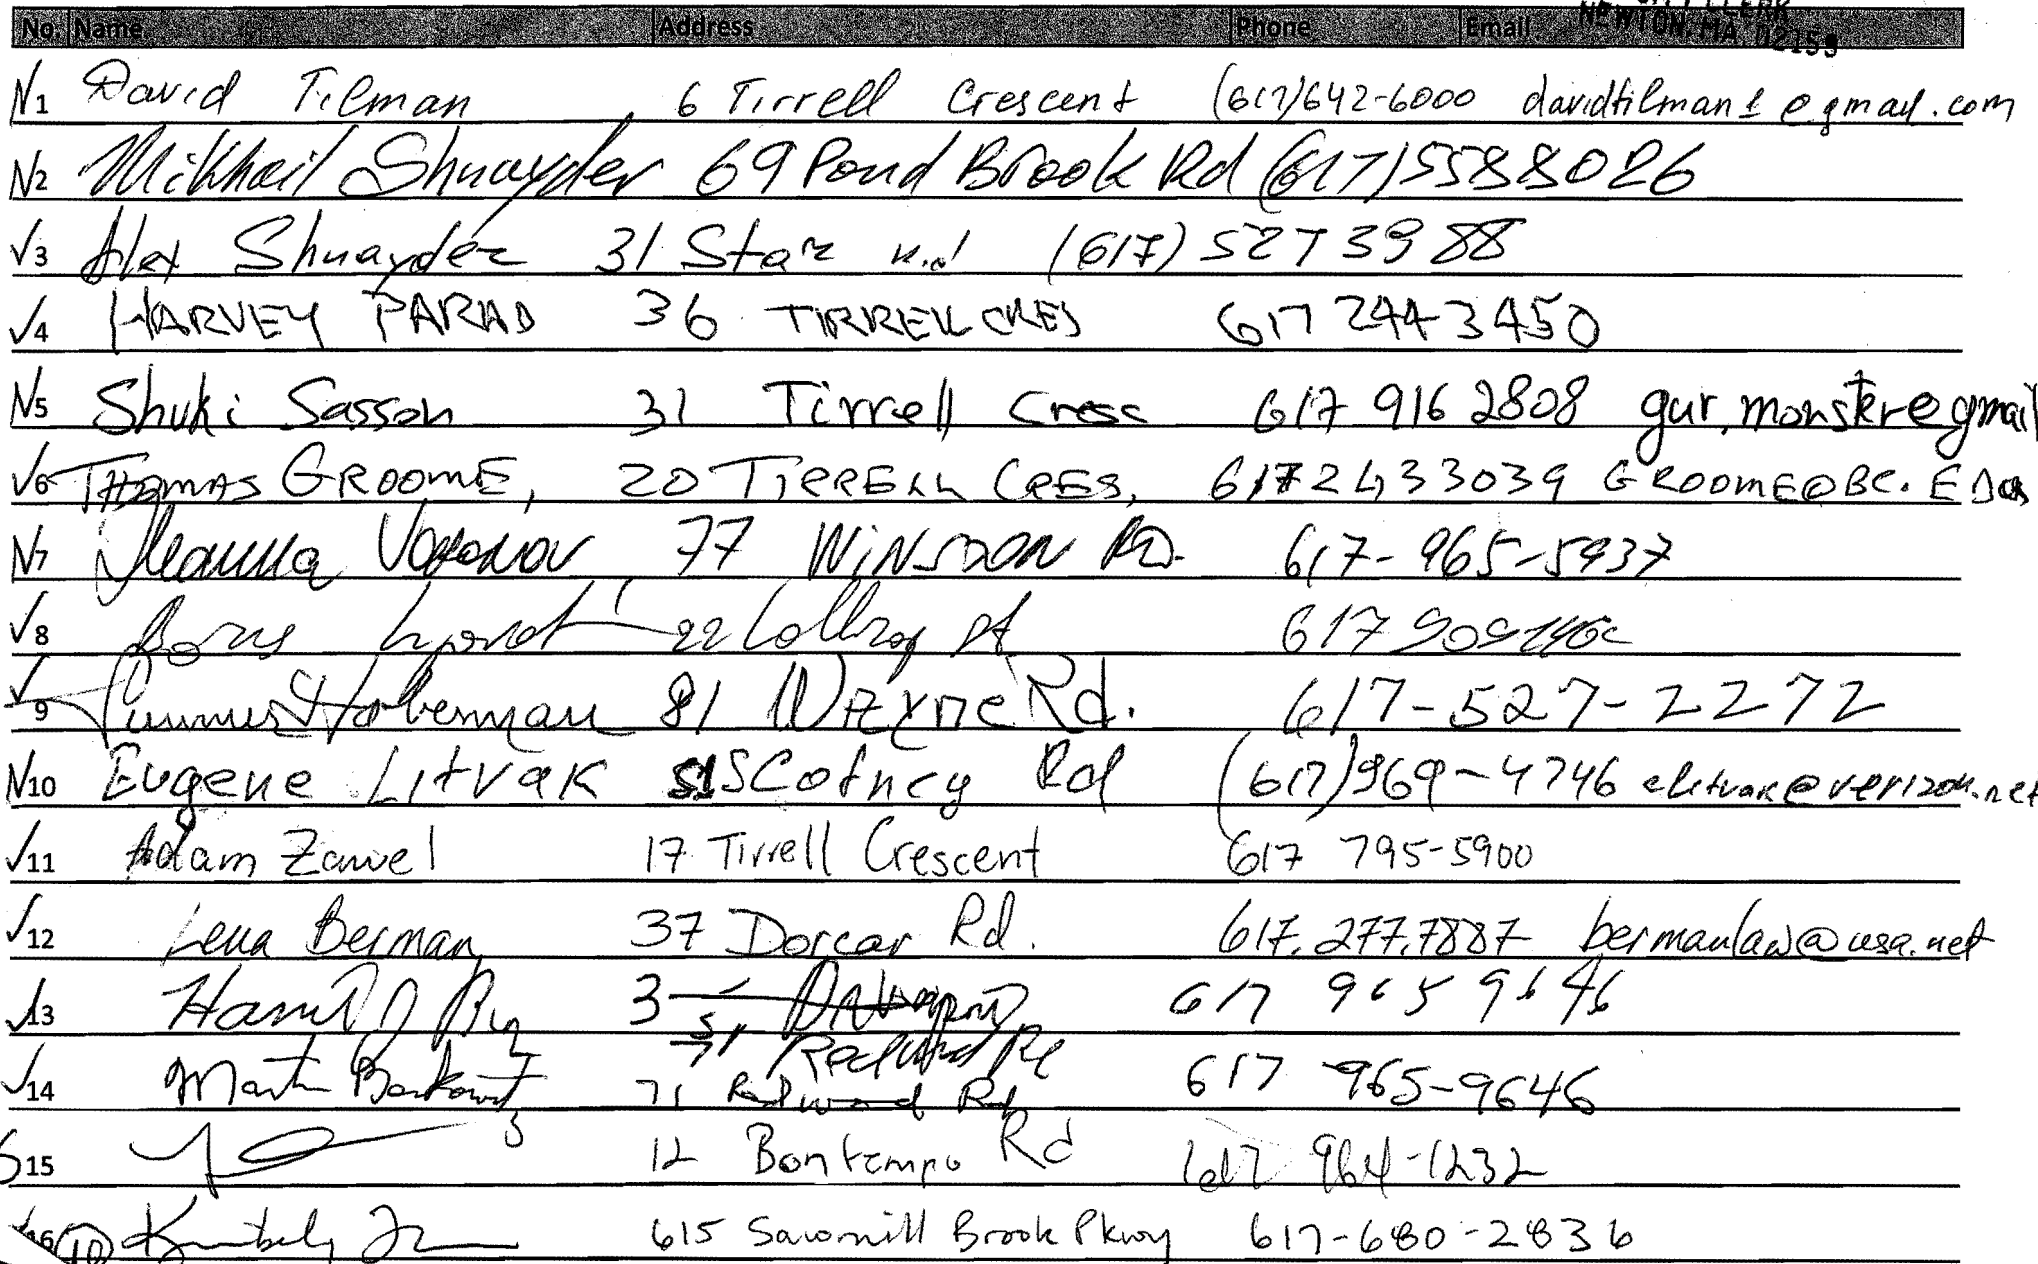 No. Name Address Phone Email NEWTON, MA. 02159
N1 David Tilman 6 Tirrell Crescent (617)642-6000 davidtilman1@gmail.com
N2 Mikhail Shnayder 69 Pond Brook Rd (617)5588026
√3 Alex Shnayder 31 Star Rd (617) 5273988
√4 HARVEY PARAD 36 TIRRELL CRES 617 244 3450
N5 Shuki Sasson 31 Tirrell Cresc 617 916 2808 gur.monster@gmail
√6 THOMAS GROOME, 20 TIRRELL CRES, 617 2433039 GROOME@BC.EDU
N7 77 WINSTON RD. 617-965-5937
√8 Boris 22 617
√9 Haberman 81 Wayne Rd. 617-527-2272
N10 Eugene Litvak 51 Scotney Rd (617)969-4746 elitvak@verizon.net
√11 Adam Zawel 17 Tirrell Crescent 617 795-5900
√12 Lena Berman 37 Dorcar Rd. 617.277.7887 bermanlaw@usa.net
√13 3 617 965 9646
71
√14 Martin Berkowitz 71 Redwood Rd 617 965-9646
15 12 Bontempo Rd 617 964-1232
16 10 Kimberly 615 Sawmill Brook Pkwy 617-680-2836